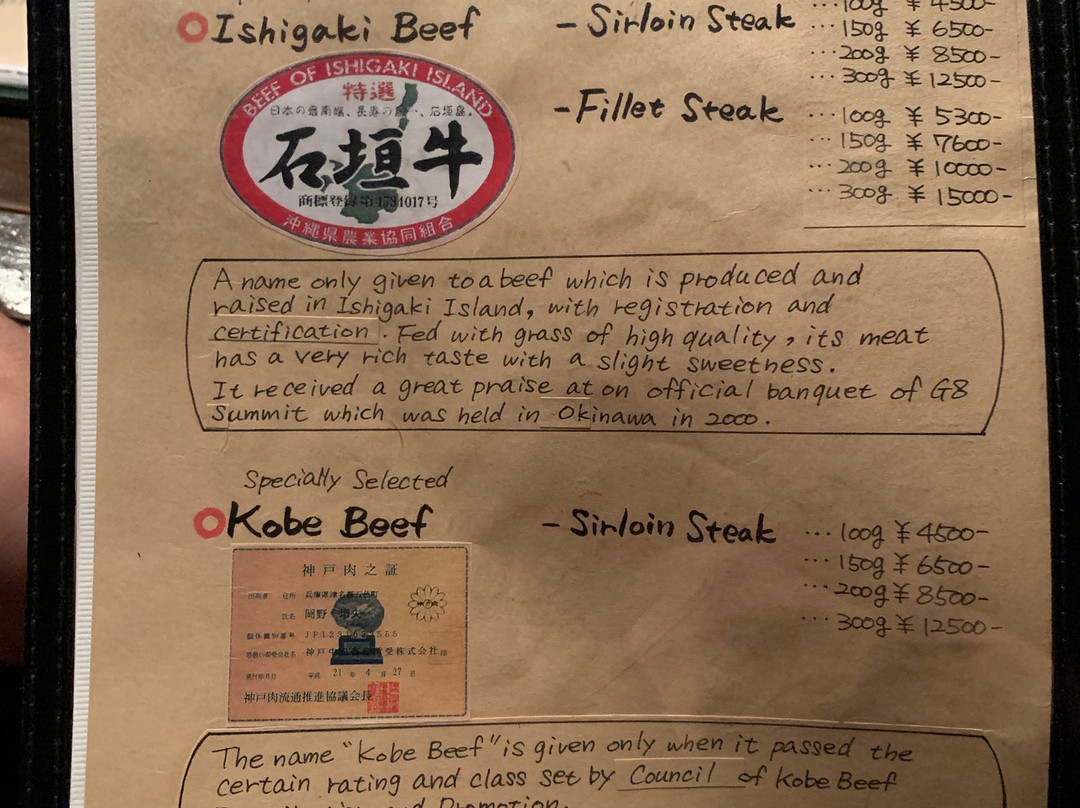 Ishigaki Beef
- Sirloin Steak
... 100g ¥ 4500-
... 150g ¥ 6500-
... 200g ¥ 8500-
... 300g ¥ 12500-
BEEF OF ISHIGAKI ISLAND
特選
日本の最南端、長寿の島、石垣島。
石垣牛
商標登録第4734017号
沖縄県農業協同組合
- Fillet Steak
... 100g ¥ 5300-
... 150g ¥ 7600-
... 200g ¥ 10000-
... 300g ¥ 15000-
A name only given to a beef which is produced and
raised in Ishigaki Island, with registration and
certification. Fed with grass of high quality, its meat
has a very rich taste with a slight sweetness.
It received a great praise at on official banquet of G8
Summit which was held in Okinawa in 2000.
Specially Selected
Kobe Beef
- Sirloin Steak
... 100g ¥ 4500-
... 150g ¥ 6500-
... 200g ¥ 8500-
... 300g ¥ 12500-
神戸肉之証
住所 兵庫県津名郡五色町
氏名 岡野
個体識別番号
神戸 株式会社 印
平成 21 年 4 月 27 日
神戸肉流通推進協議会長
The name "Kobe Beef" is given only when it passed the
certain rating and class set by Council of Kobe Beef
and Promotion.